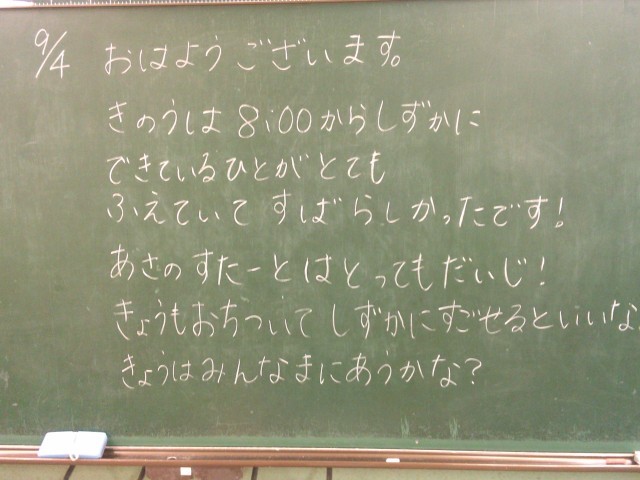 9/4 おはようございます。
きのうは 8:00からしずかに
できているひとがとても
ふえていて すばらしかったです!
あさのすたーとはとってもだいじ!
きょうもおちついて しずかにすごせるといいな
きょうはみんなまにあうかな?